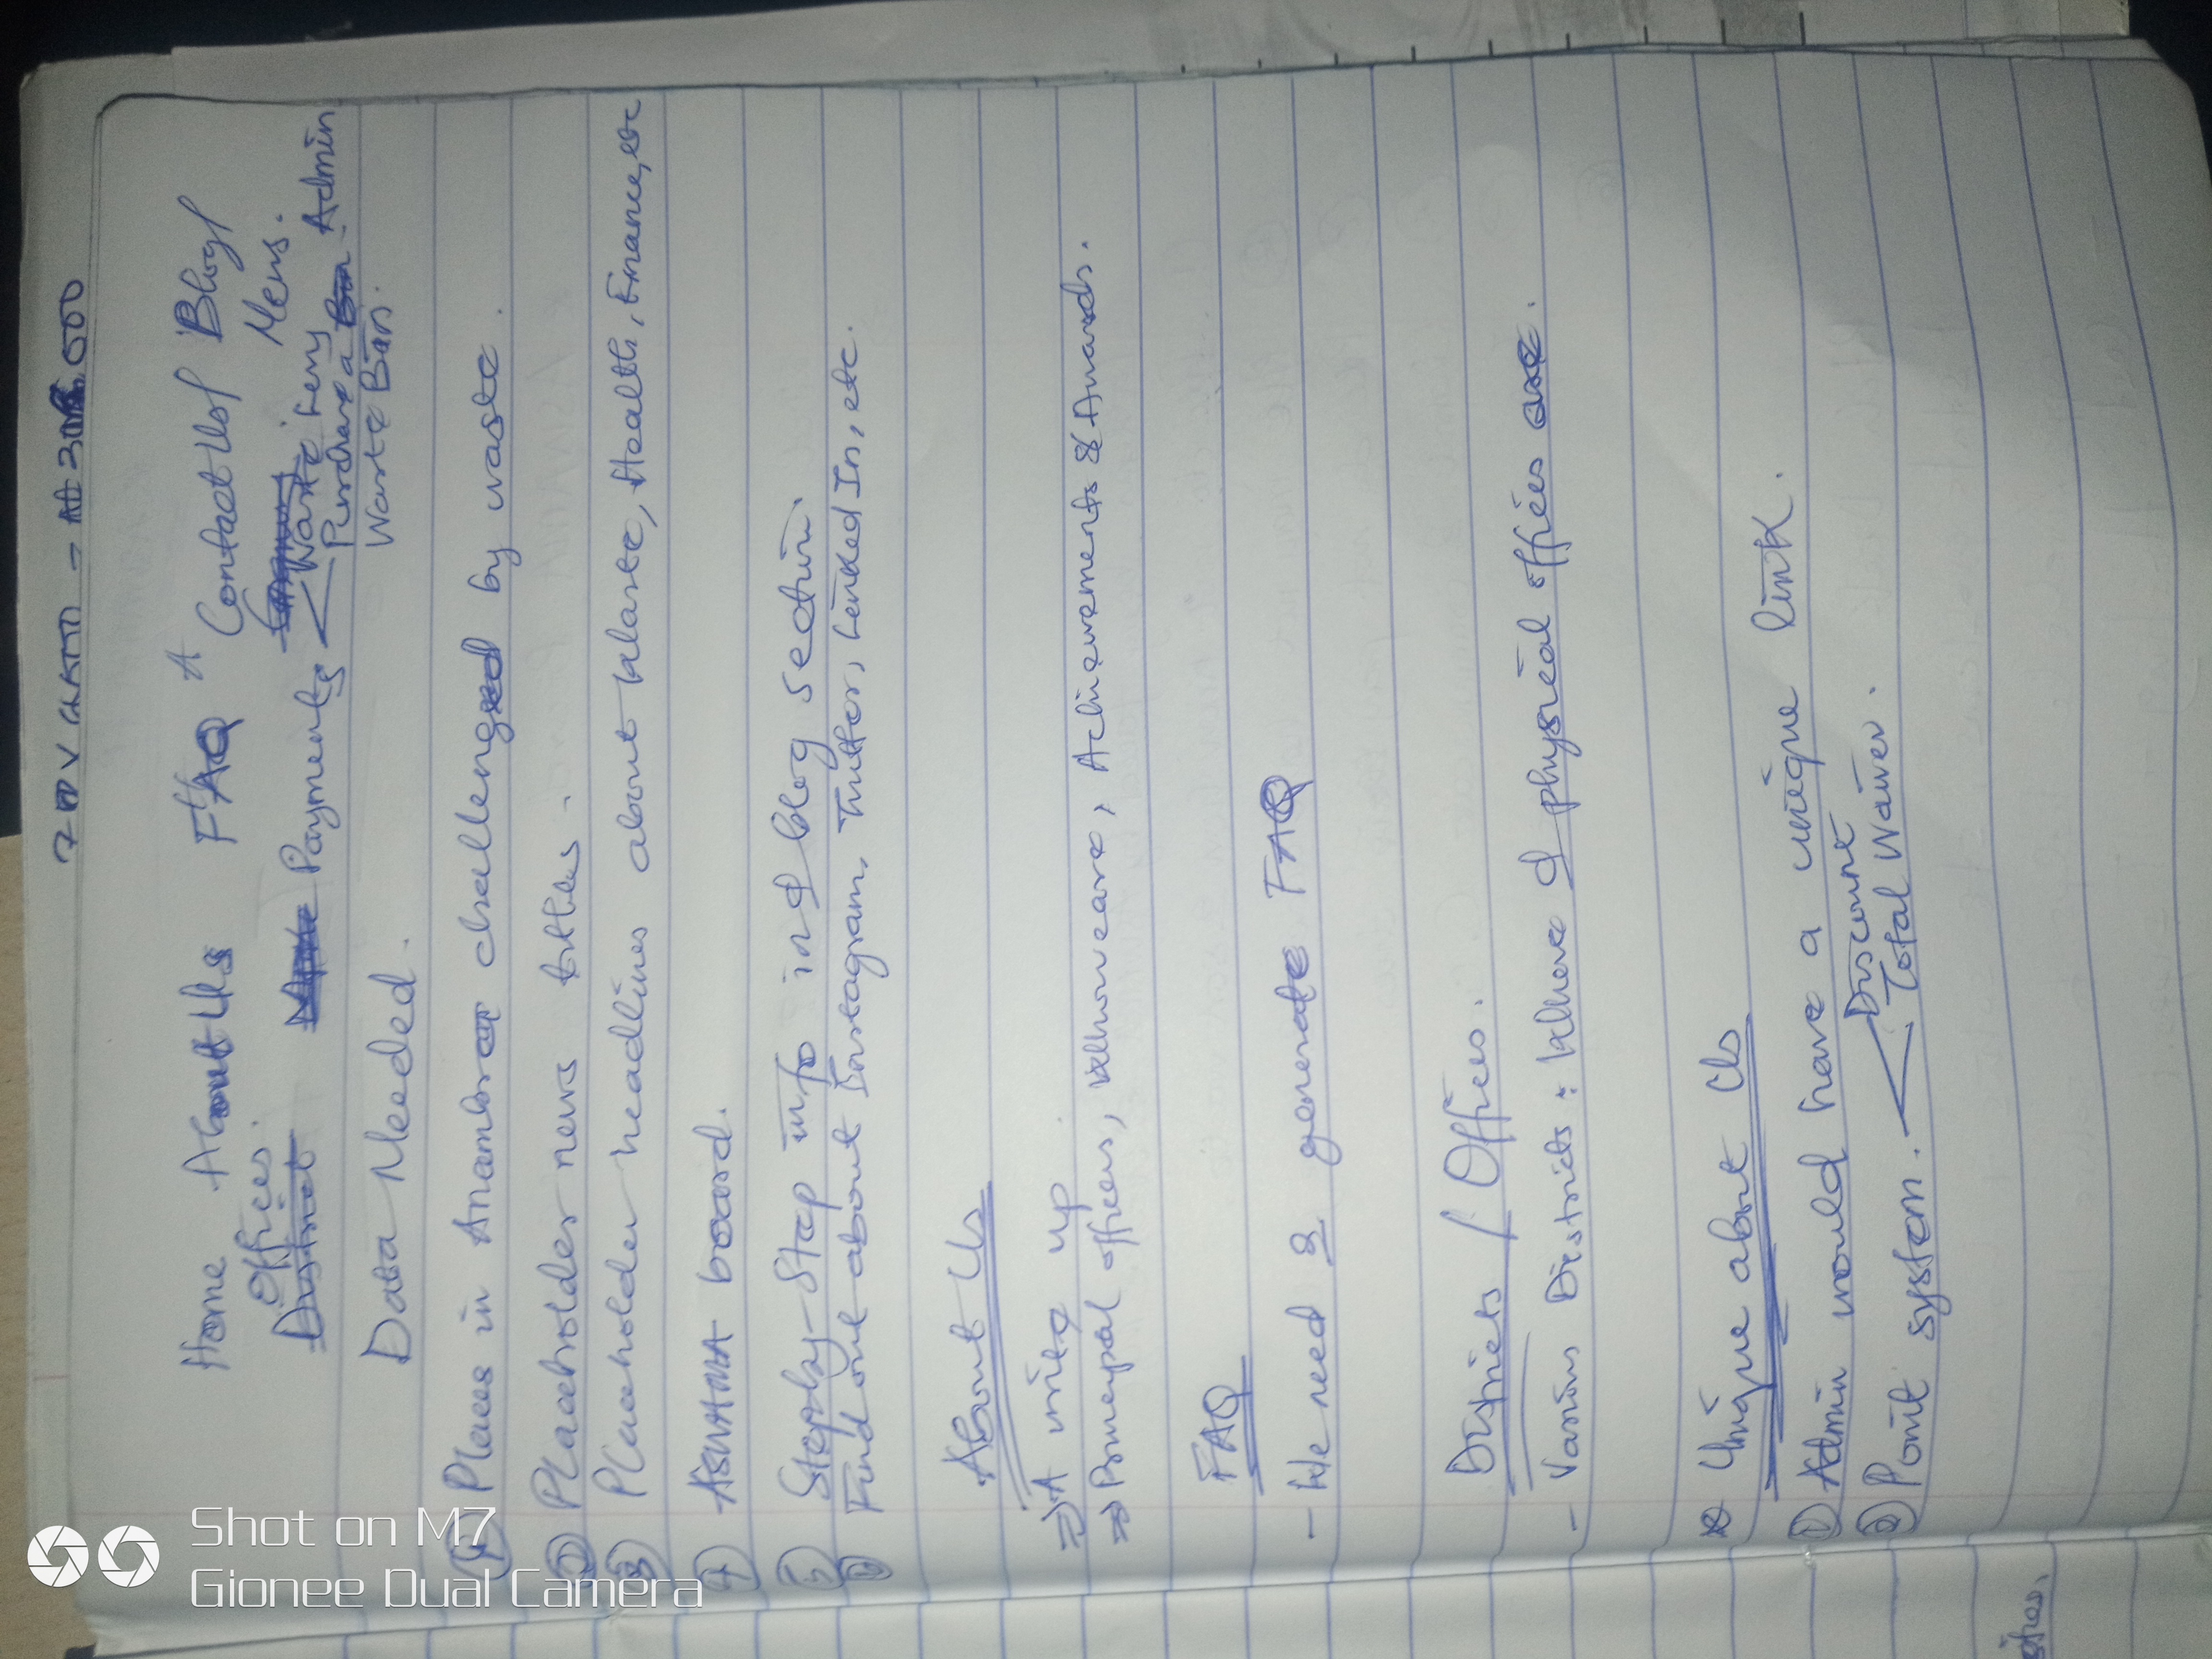 Home About Us FAQ Contact Us/ Blog/
Offices. News.
District Payments Waste Levy Admin
Purchase a Bin
Data Needed. Waste Bins.
1 Places in Anambra challenged by waste.
2 Placeholder news titles.
3 Placeholder headlines about Waste, Health, Finance, etc
4 ASWAMA board.
5 Step-by-Step info in d blog section.
6 Find out about Instagram, Twitter, Linked In, etc.
About Us
⇒ A write up
⇒ Principal officers, Who we are, Achievements & Awards.
FAQ
- We need 2 generate FAQ
Districts / Offices.
- Various Districts: Where d physical offices are.
Unique about Us
1 Admin would have a unique link.
2 Point system. Discount
Total Waiver.
Shot on M7
Gionee Dual Camera